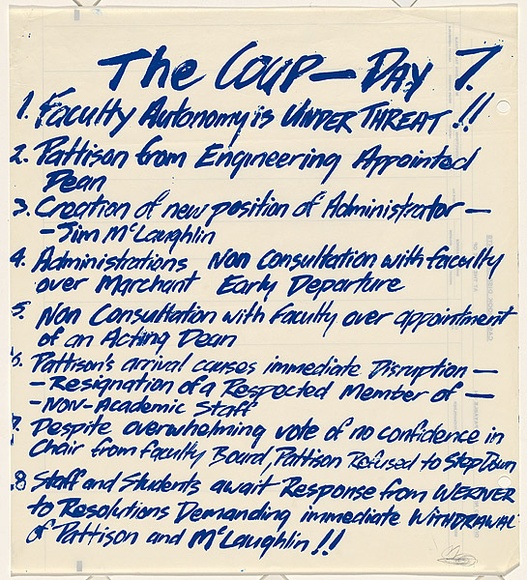 The COUP — DAY 7.
1. Faculty Autonomy is UNDER THREAT!!
2. Pattison from Engineering Appointed
Dean
3. Creation of new position of Administrator —
- Jim McLaughlin
4. Administrations Non Consultation with faculty
over Marchant Early Departure
5. Non Consultation with faculty over appointment
of an Acting Dean
6. Pattison's arrival causes immediate Disruption —
- Resignation of a Respected Member of —
- NON-Academic Staff
7. Despite overwhelming vote of no confidence in
Chair from Faculty Board, Pattison Refused to Step Down
8 Staff and Students await Response from WERNER
to Resolutions Demanding immediate WITHDRAWAL
of Pattison and McLaughlin!!